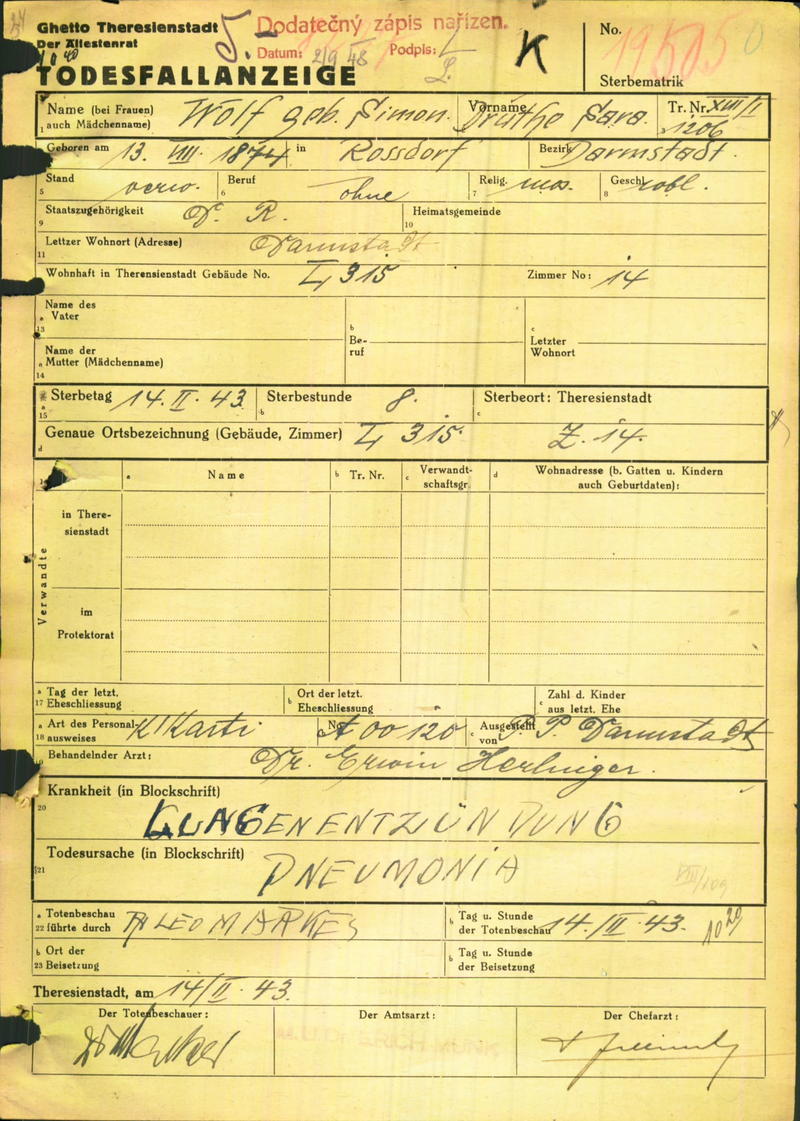 Ghetto Theresienstadt
Der Ältestenrat
Dodatečný zápis nařízen.
Datum: 2/9 48 Podpis:
K
No.
Sterbematrik
TODESFALLANZEIGE
1 Name (bei Frauen) auch Mädchenname) Wolf geb. Simon. Vorname Sara. Tr. Nr. XIII/1 1206
Geboren am 13. VIII. 1874 in Rossdorf Bezirk Darmstadt.
5 Stand verw. 6 Beruf ohne 7 Relig. mos. 8 Geschl.
9 Staatszugehörigkeit D. R. 10 Heimatsgemeinde
11 Lettzer Wohnort (Adresse) Darmstadt
Wohnhaft in Therensienstadt Gebäude No. L 315 Zimmer No: 14
13 a Name des Vater b Beruf c Letzter Wohnort
14 a Name der Mutter (Mädchenname)
15 a Sterbetag 14. II. 43 b Sterbestunde 8. c Sterbeort: Theresienstadt
d Genaue Ortsbezeichnung (Gebäude, Zimmer) L 315. Z. 14.
a Name b Tr. Nr. c Verwandtschaftsgr. d Wohnadresse (b. Gatten u. Kindern auch Geburtdaten):
Verwandte
in Theresienstadt
im Protektorat
17 a Tag der letzt. Eheschliessung b Ort der letzt. Eheschliessung c Zahl d. Kinder aus letzt. Ehe
18 a Art des Personalausweises K'Karte b No. A 00 120 c Ausgestellt von P. P. Darmstadt
Behandelnder Arzt: Dr. Erwin
20 Krankheit (in Blockschrift) LUNGENENTZÜNDUNG
21 Todesursache (in Blockschrift) PNEUMONIA
22 a Totenbeschau führte durch b Tag u. Stunde der Totenbeschau 14./II. 43. 10 20
23 b Ort der Beisetzung b Tag u. Stunde der Beisetzung
Theresienstadt, am 14/II. 43.
Der Totenbeschauer: Der Amtsarzt: Der Chefarzt: